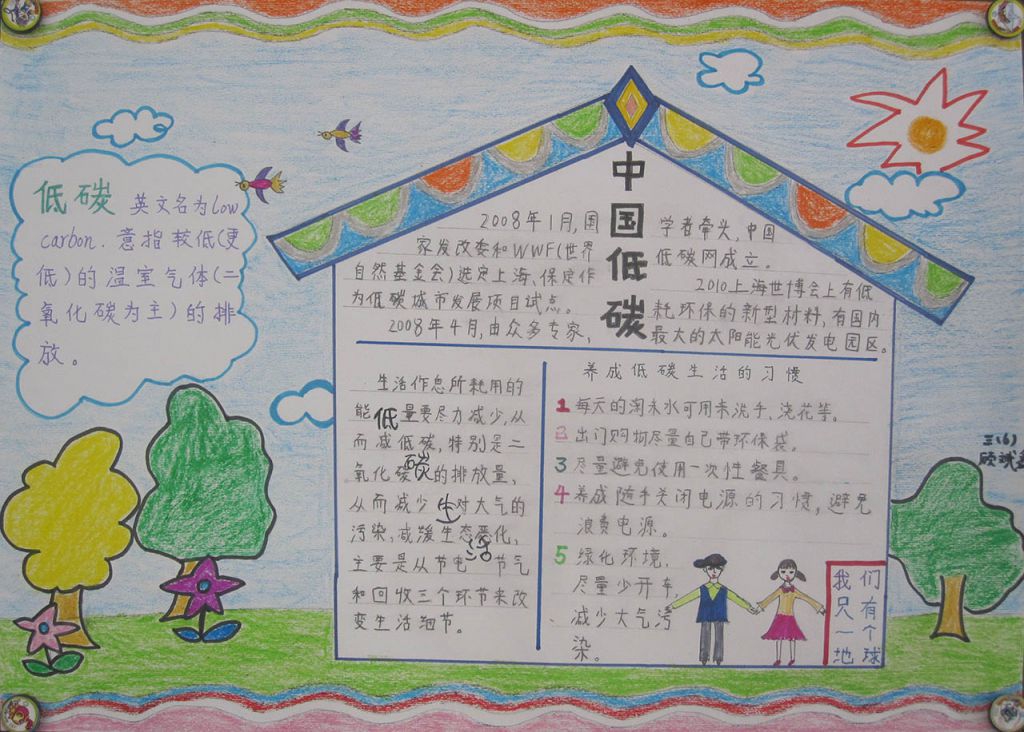 低碳 英文名为low
carbon.意指较低(更
低)的温室气体(二
氧化碳为主)的排
放。
中国低碳
2008年1月,国
家发改委和WWF(世界
自然基金会)选定上海、保定作
为低碳城市发展项目试点。
2008年4月,由众多专家、
学者牵头,中国
低碳网成立。
2010上海世博会上有低
耗环保的新型材料,有国内
最大的太阳能光伏发电园区。
低碳生活
生活作息所耗用的
能量要尽力减少,从
而减低碳,特别是二
氧化碳的排放量,
从而减少对大气的
污染,减缓生态恶化,
主要是从节电 节气
和回收三个环节来改
变生活细节。
养成低碳生活的习惯
1 每天的淘米水可用来洗手、浇花等。
2 出门购物尽量自己带环保袋。
3 尽量避免使用一次性餐具。
4 养成随手关闭电源的习惯,避免
浪费电源。
5 绿化环境,
尽量少开车,
减少大气污
染。
我们
只有
一个
地球
三(6)